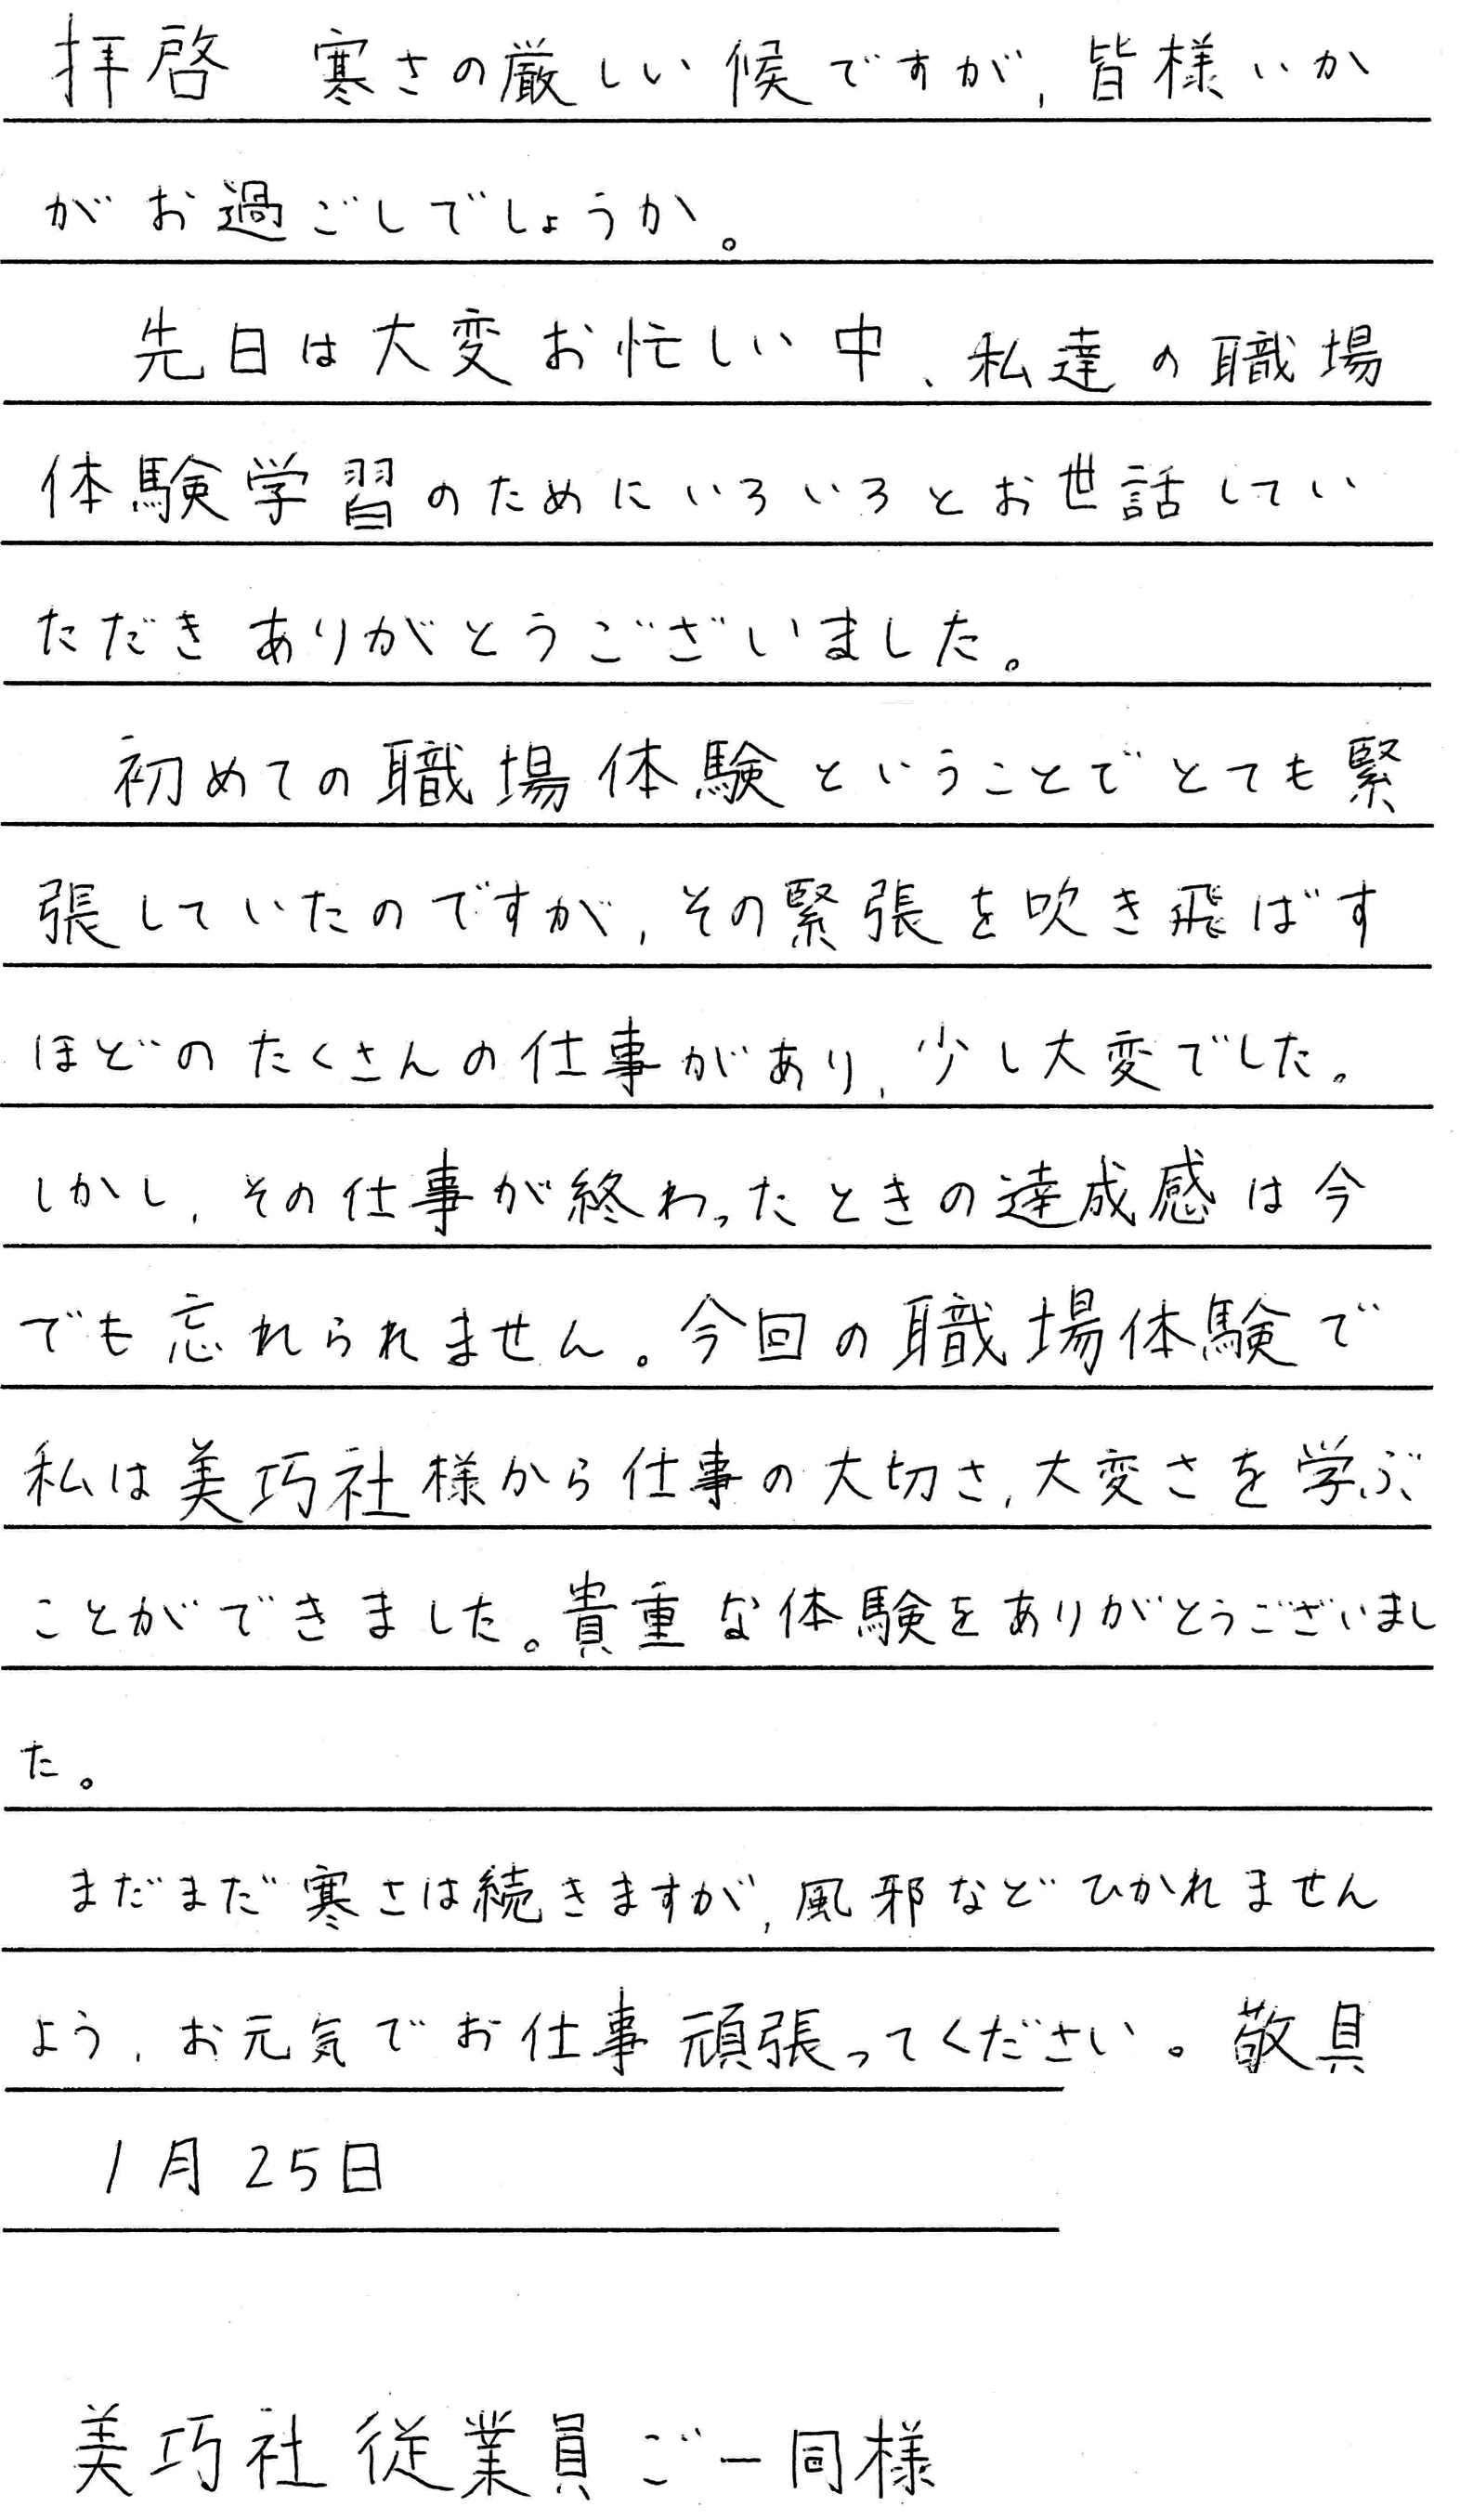 拝啓　寒さの厳しい候ですが,皆様いか
がお過ごしでしょうか。
先日は大変お忙しい中、私達の職場
体験学習のためにいろいろとお世話してい
ただきありがとうございました。
初めての職場体験ということでとても緊
張していたのですが,その緊張を吹き飛ばす
ほどのたくさんの仕事があり,少し大変でした。
しかし,その仕事が終わったときの達成感は今
でも忘れられません。今回の職場体験で
私は美巧社様から仕事の大切さ,大変さを学ぶ
ことができました。貴重な体験をありがとうございまし
た。
まだまだ寒さは続きますが,風邪などひかれません
よう,お元気でお仕事頑張ってください。敬具
1月25日
美巧社従業員ご一同様